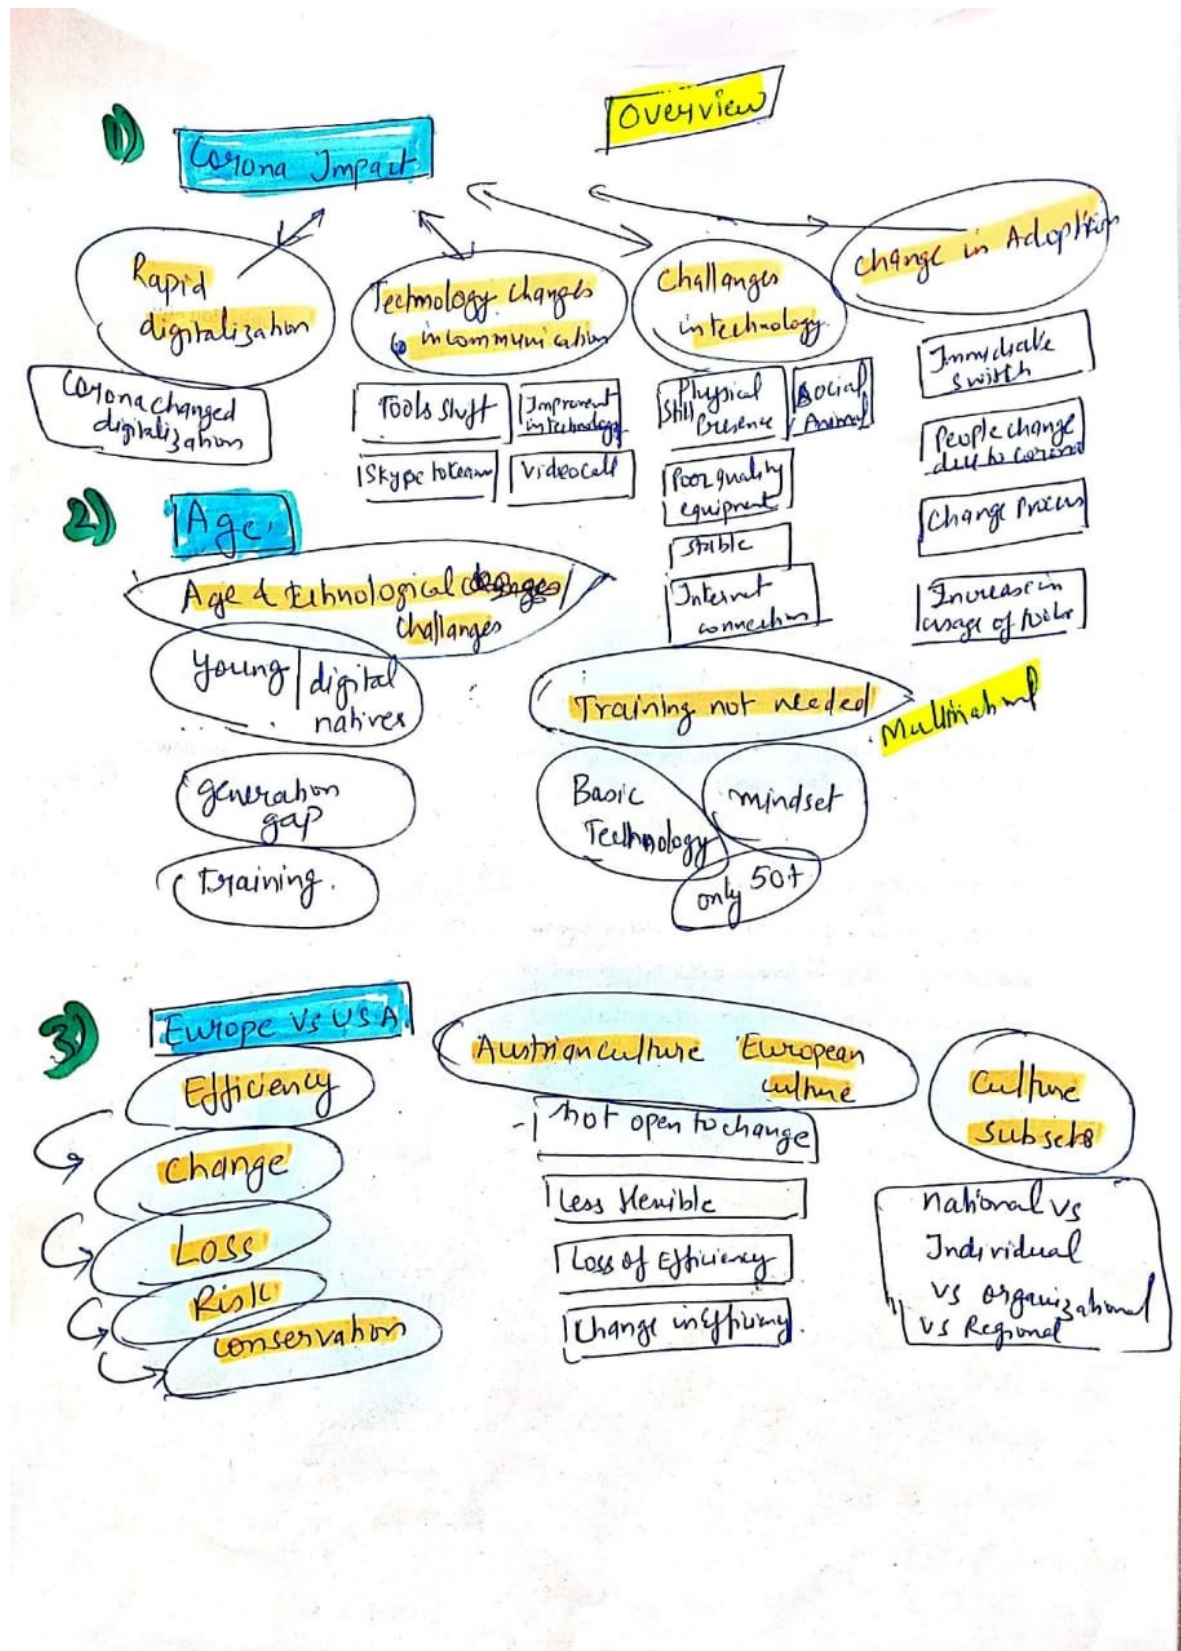 Overview
1)
Corona Impact
Rapid
digitalization
Technology changes
in communication
Challanges
in technology
Change in Adoption
Corona changed
digitalization
Tools shift
Improvent
in technology
Skype to team
Videocall
Physical
Still Presence
Social
Animal
Poor quality
equipment
Stable
Internet
connection
Immediate
switch
People change
due to corona
Change Process
Increase in
usage of tools
2)
Age
Age & tehnological changes/
Challanges
Young | digital
natives
generation
gap
training.
Training not needed
Multinational
Basic
Technology
mindset
only 50+
3)
Europe Vs USA
Efficiency
Change
Loss
Risk
conservation
Austrian culture European
culture
- not open to change
less flexible
Loss of Efficiency
Change in
Culture
Subsets
national vs
Individual
vs organizational
vs Regional